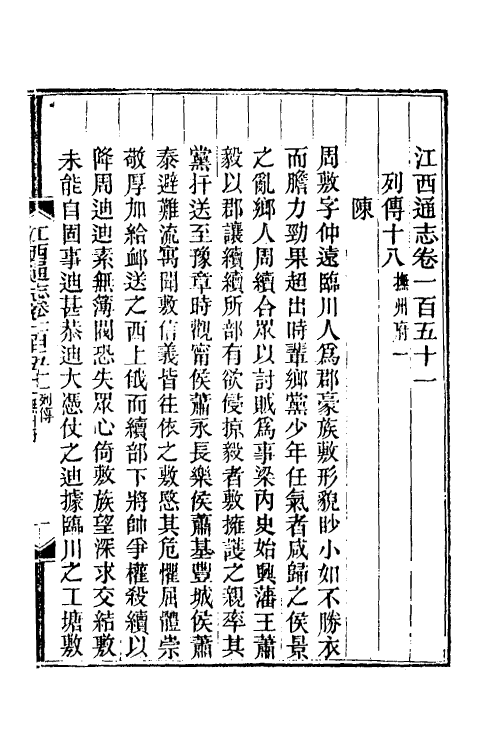 江西通志卷一百五十一
列傳十八 撫州府一
陳
周敷字仲遠臨川人爲郡豪族敷形貌眇小如不勝衣
而膽力勁果超出時輩鄉黨少年任氣者咸歸之侯景
之亂鄉人周續合眾以討賊爲事梁內史始興藩王蕭
毅以郡讓續續所部有欲侵掠毅者敷擁護之親率其
黨扞送至豫章時觀甯侯蕭永長樂侯蕭基豐城侯蕭
泰避難流寓聞敷信義皆往依之敷愍其危懼屈體崇
敬厚加給衈送之西上俄而續部下將帥爭權殺續以
降周迪迪素無薄閥恐失眾心倚敷族望深求交結敷
未能自固事迪甚恭迪大憑仗之迪據臨川之工塘敷
江西通志卷一百五十一 列傳
一